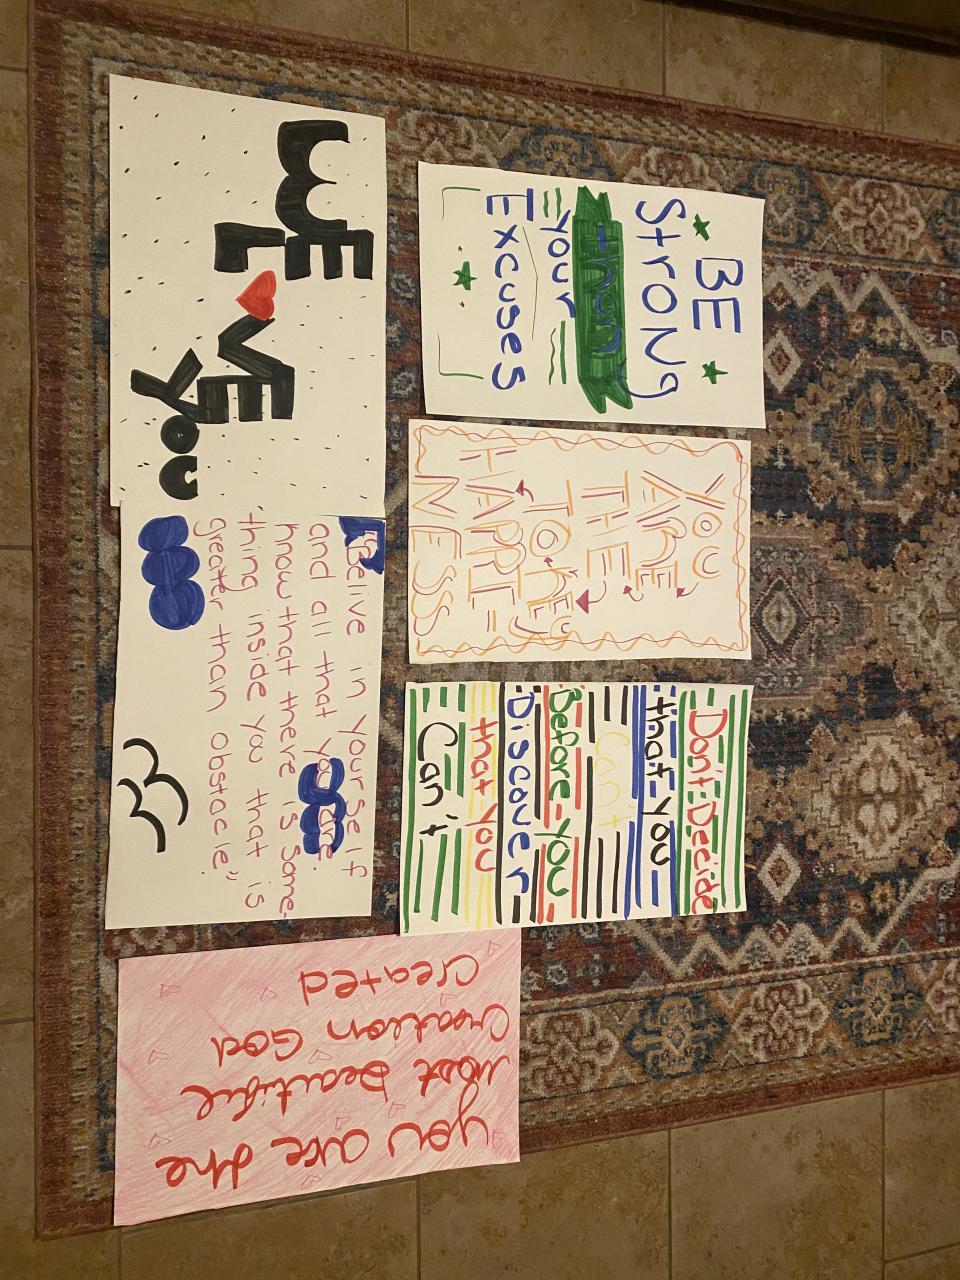 WE
L VE
You
BE
Strong
than
your
Excuses
YOU
ARE
THE
TO
HAPPI=
NESS
Don't Decide
that You
Can't
Before You
Discover
that You
Can't
"Belive in yourself
and all that you are.
know that there is Some-
thing inside you that is
greater than obstacle."
you are the
most beautiful
Creation God
Created